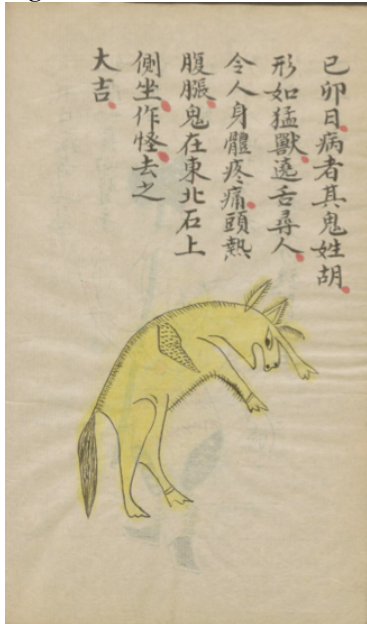 己卯日病者其鬼姓胡
形如猛獸遶舌尋人
令人身體疼痛頭熱
腹脹鬼在東北石上
側坐作怪去之
大吉